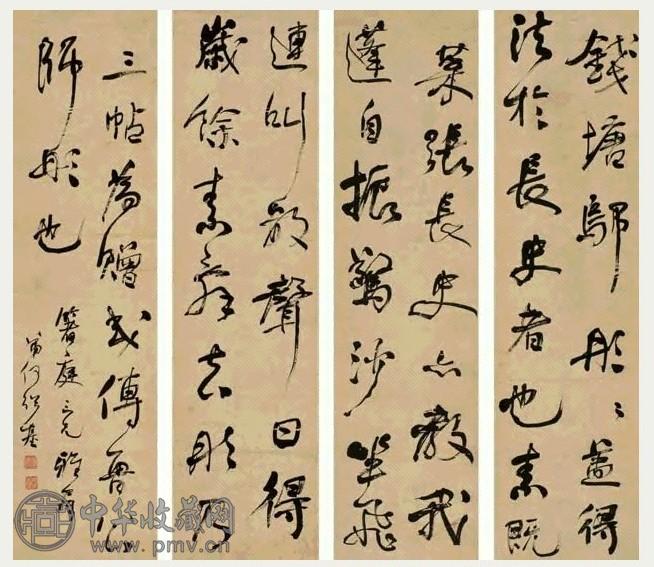 錢塘鄔彤〻蓋得
法於長史者也素既
業張長史亦教我
蓬自振驚沙坐飛
連叫數聲曰得
歲餘素辭去彤乃
三帖為贈或傳魯公
師彤也
箬庭三兄雅屬
弟何紹基
中华收藏网
www.pmv.cn